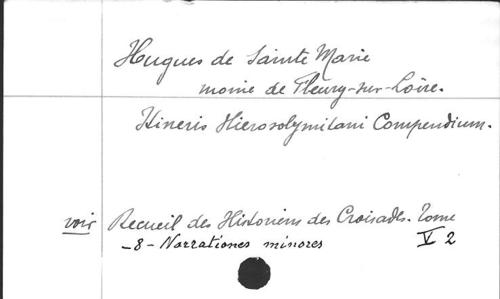 Hugues de Sainte Marie
moine de Fleury-sur-Loire.
Itineris Hierosolymitani Compendium.
voir Recueil des Historiens des Croisades. Tome
-8- Narrationes minores V 2